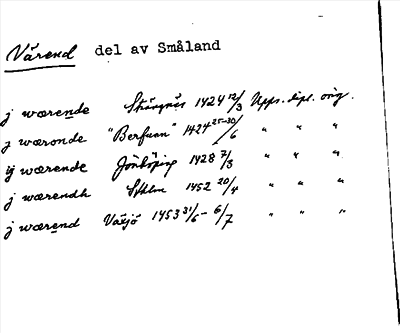 Värend del av Småland
j wærende Strängnäs 1424 12/3 Upps. dipl. orig.
j wæronde "Berfuan" 1424 25-30/6 " " "
ij wærende Jönköping 1428 7/3 " " "
j wærendh Sthlm 1452 20/4 " " "
j wærend Växjö 1453 31/5 - 6/7 " " "